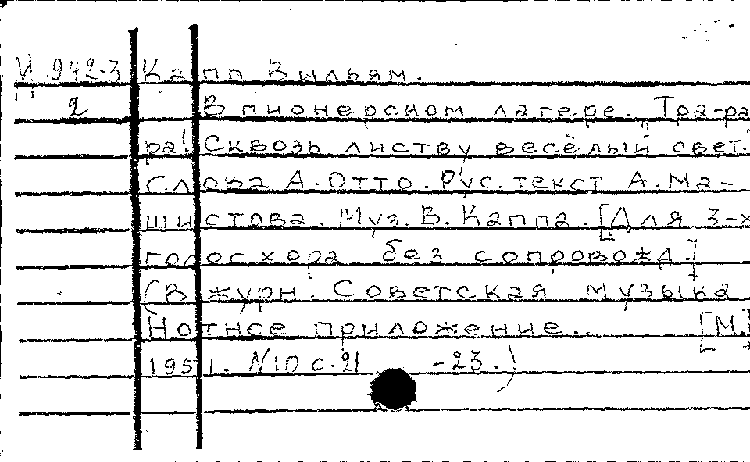 И 942-3 Капп Вильям.
2 В пионерском лагере. Тра-ра
ра! Сквозь листву весёлый свет.
Слова А. Отто. Рус. текст А. Ма-
шистова. Муз. В. Каппа. [Для 3-х
голос хора без сопровожд.]
(В журн. Советская музыка
Нотное приложение.. [М.]
1951. N10 с. 21 -23.)